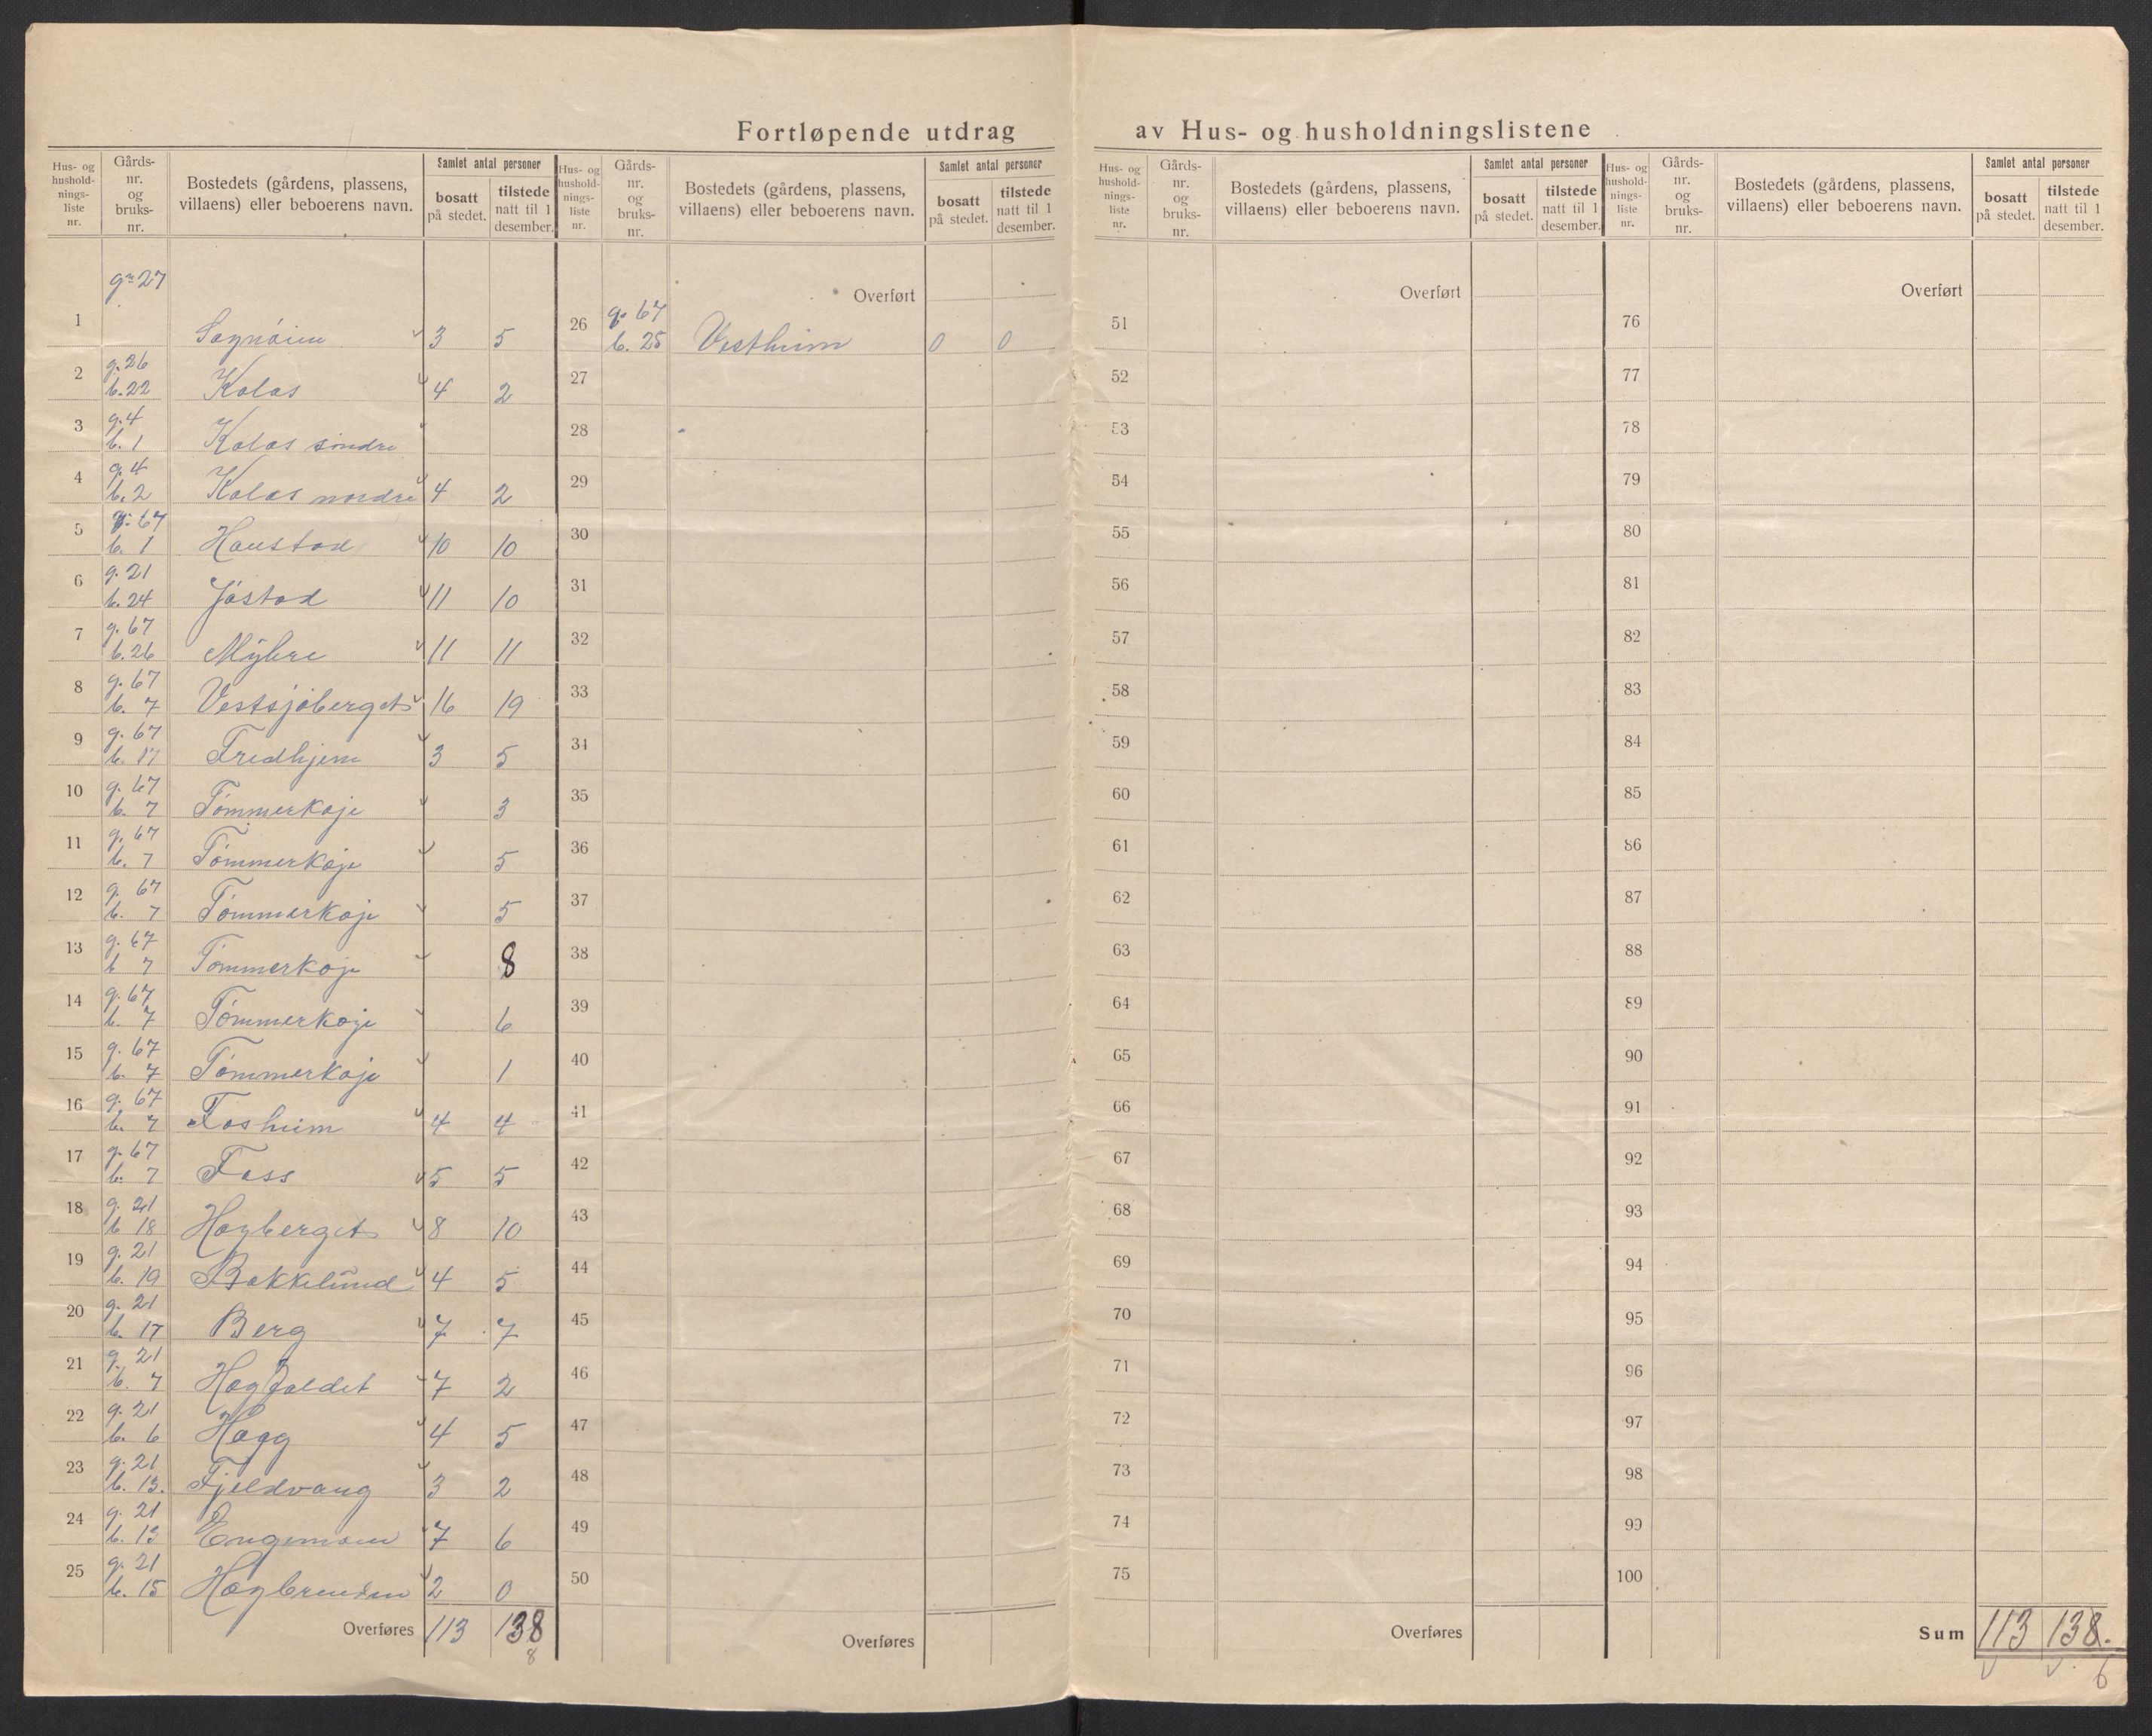 Fortløpende utdrag av Hus- og husholdningslistene
Hus- og husholdnings-liste nr. Gårds-nr. og bruks-nr. Bostedets (gårdens, plassens, villaens) eller beboerens navn. Samlet antal personer bosatt på stedet. tilstede natt til 1 desember.
gr 27
1 3 5
2 g. 26 b. 22 Kolos 4 2
3 g. 4 b. 1 Kolos söndre
4 g. 4 b. 2 Kolos nordre 4 2
5 g. 67 b. 1 Haustad 10 10
6 g. 21 b. 24 Jöstad 11 10
7 g. 67 b. 26 Myhre 11 11
8 g. 67 b. 7 Vestsjöberget 16 19
9 g. 67 b. 17 Fredhjem 3 5
10 g. 67 b. 7 Tömmerkoje 3
11 g. 67 b. 7 Tömmerkoje 5
12 g. 67 b. 7 Tömmerkoje 5
13 g. 67 b 7 Tömmerkoje 8
14 g. 67 b. 7 Tömmerkoje 6
15 g. 67 b. 7 Tömmerkoje 1
16 g. 67 b. 7 Fosheim 4 4
17 g. 67 b. 7 Foss 5 5
18 g. 21 b 18 Hagberget 8 10
19 g. 21 b. 19 Bakkelund 4 5
20 g. 21 b. 17 Berg 7 7
21 g. 21 b. 7 7 2
22 g. 21 b. 6 Hagg 4 5
23 g. 21 b. 13. Fjeldvang 3 2
24 g. 21 b. 13 Engemoen 7 6
25 g. 21 b. 15 2 0
Overføres 113 138
8
Hus- og husholdnings-liste nr. Gårds-nr. og bruks-nr. Bostedets (gårdens, plassens, villaens) eller beboerens navn. Samlet antal personer bosatt på stedet. tilstede natt til 1 desember.
Overført
26 g. 67 b. 25 Vestheim 0 0
27
28
29
30
31
32
33
34
35
36
37
38
39
40
41
42
43
44
45
46
47
48
49
50
Overføres
Hus- og husholdnings-liste nr. Gårds-nr. og bruks-nr. Bostedets (gårdens, plassens, villaens) eller beboerens navn. Samlet antal personer bosatt på stedet. tilstede natt til 1 desember.
Overført
51
52
53
54
55
56
57
58
59
60
61
62
63
64
65
66
67
68
69
70
71
72
73
74
75
Overføres
Hus- og husholdnings-liste nr. Gårds-nr. og bruks-nr. Bostedets (gårdens, plassens, villaens) eller beboerens navn. Samlet antal personer bosatt på stedet. tilstede natt til 1 desember.
Overført
76
77
78
79
80
81
82
83
84
85
86
87
88
89
90
91
92
93
94
95
96
97
98
99
100
Sum 113 138.
6